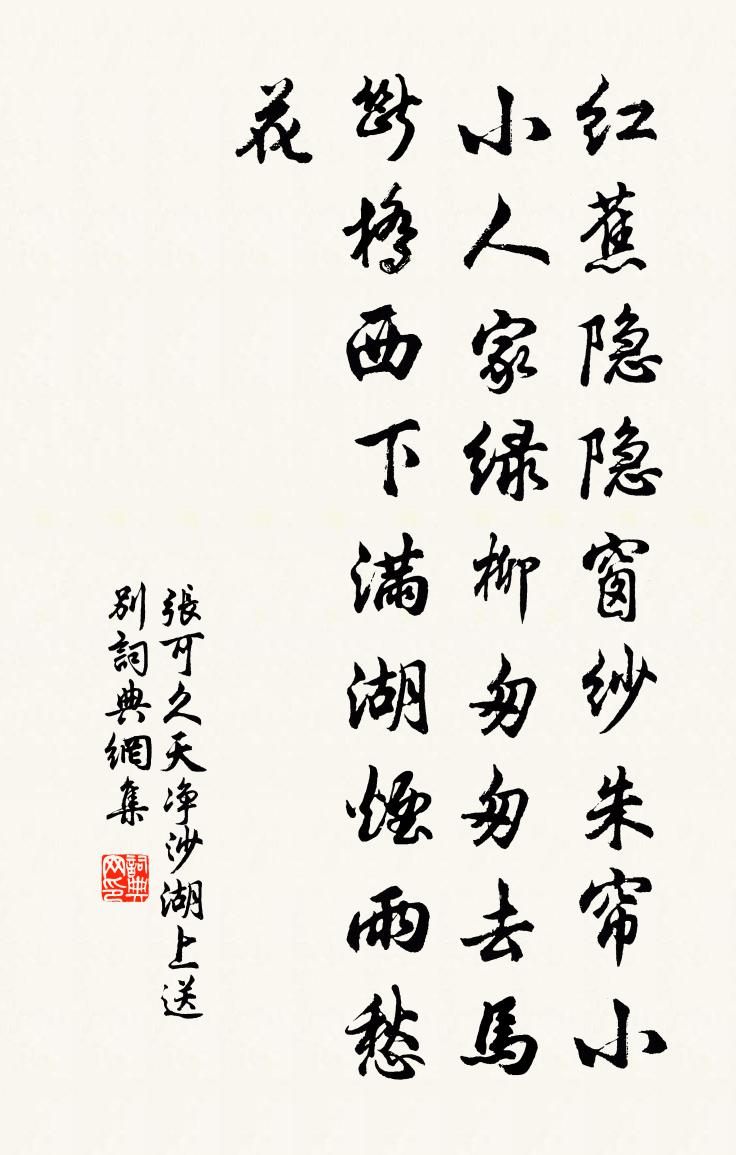 红蕉隐隐窗纱朱帘小
小人家绿柳匆匆去馬
斷橋西下满湖煙雨愁
花
張可久天净沙湖上送
別詞典網集
詞典网印